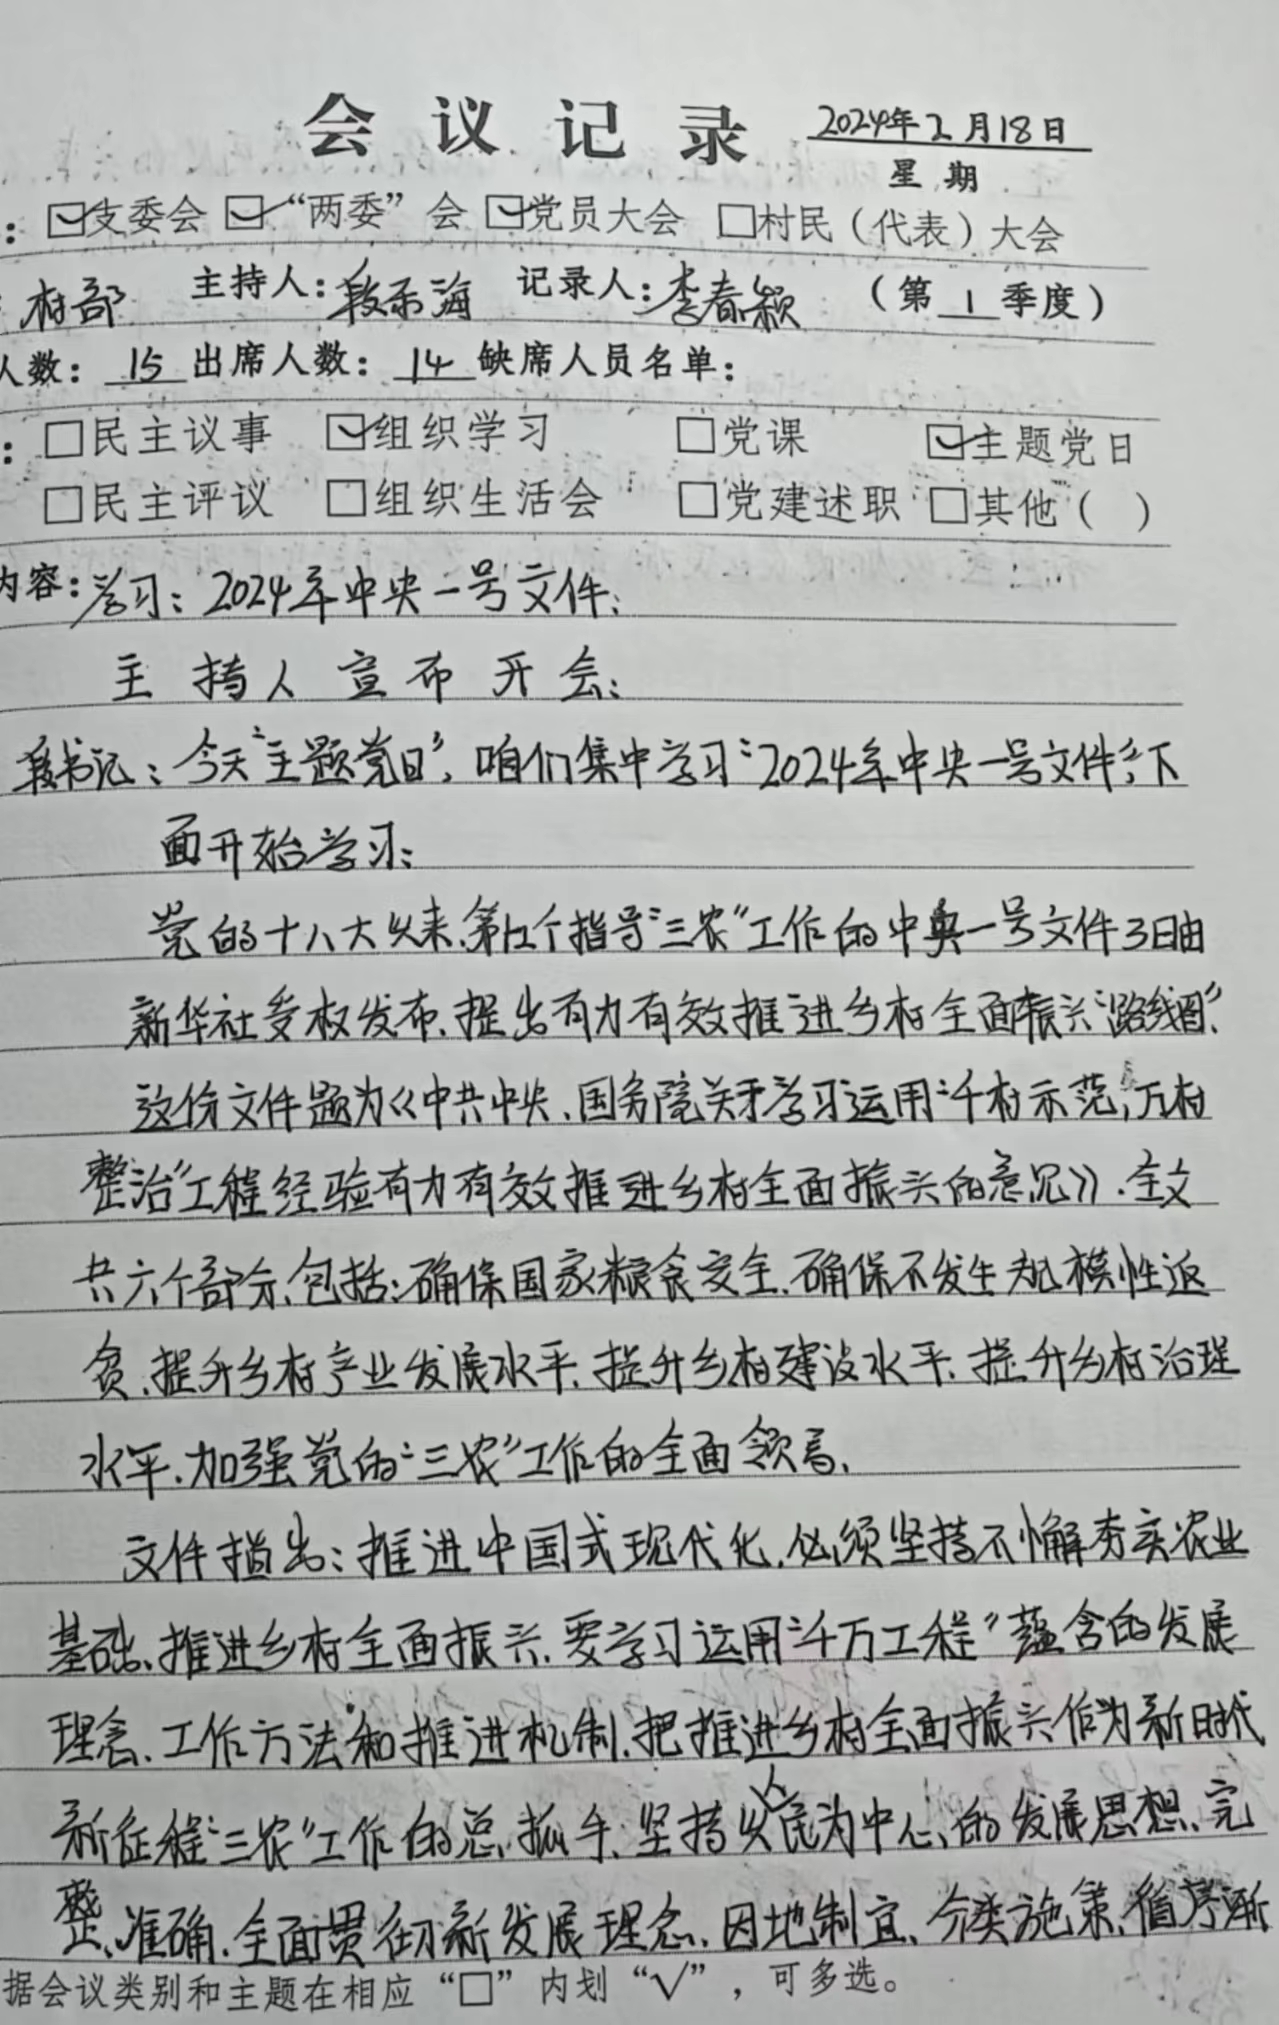 会议记录 2024年2月18日
星期
：☑支委会 ☑“两委”会 ☑党员大会 □村民（代表）大会
：村部 主持人：段示海 记录人：李春颖 （第1季度）
人数：15 出席人数：14 缺席人员名单：
：□民主议事 ☑组织学习 □党课 ☑主题党日
□民主评议 □组织生活会 □党建述职 □其他（ ）
内容：学习：2024年中央一号文件：
主持人宣布开会：
段书记：今天“主题党日”，咱们集中学习“2024年中央一号文件”下
面开始学习：
党的十八大以来、第12个指导“三农”工作的中央一号文件3日由
新华社受权发布、提出有力有效推进乡村全面振兴“路线图”、
这份文件题为《中共中央、国务院关于学习运用“千村示范，万村
整治”工程经验有力有效推进乡村全面振兴的意见》、全文
共六个部分、包括：确保国家粮食安全、确保不发生规模性返
贫、提升乡村产业发展水平、提升乡村建设水平、提升乡村治理
水平、加强党的“三农”工作的全面领导、
文件指出：推进中国式现代化、必须坚持不懈夯实农业
基础、推进乡村全面振兴、要学习运用“千万工程”蕴含的发展
理念、工作方法和推进机制、把推进乡村全面振兴作为新时代
新征程“三农”工作的总抓手、坚持以人民为中心、的发展思想、完
整、准确、全面贯彻新发展理念、因地制宜、分类施策、循序渐
据会议类别和主题在相应“□”内划“√”，可多选。